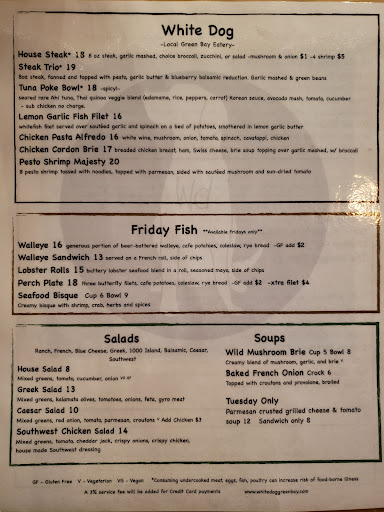 White Dog
~Local Green Bay Eatery~
House Steak* 18 8 oz steak, garlic mashed, choice broccoli, zucchini, or salad -mushroom & onion $1 -4 shrimp $5
Steak Trio* 19
8oz steak, fanned and topped with pesto, garlic butter & blueberry balsamic reduction. Garlic mashed & green beans
Tuna Poke Bowl* 18 -spicy-
seared rare Ahi tuna, Thai quinoa veggie blend (edamame, rice, peppers, carrot) Korean sauce, avocado mash, tomato, cucumber
- sub chicken no charge.
Lemon Garlic Fish Filet 16
whitefish filet served over sautéed garlic and spinach on a bed of potatoes, smothered in lemon garlic butter
Chicken Pasta Alfredo 16 white wine, mushroom, onion, tomato, spinach, cavatappi, chicken
Chicken Cordon Brie 17 breaded chicken breast, ham, Swiss cheese, brie soup topping over garlic mashed, w/ broccoli
Pesto Shrimp Majesty 20
8 pesto shrimp tossed with noodles, topped with parmesan, sided with sautéed mushroom and sun-dried tomato
Friday Fish **Available Fridays only**
Walleye 16 generous portion of beer-battered walleye, cafe potatoes, coleslaw, rye bread -GF add $2
Walleye Sandwich 13 served on a French roll, side of chips
Lobster Rolls 15 buttery lobster seafood blend in a roll, seasoned mayo, side of chips
Perch Plate 18 three butterfly filets, cafe potatoes, coleslaw, rye bread -GF add $2 -xtra filet $4
Seafood Bisque Cup 6 Bowl 9
Creamy bisque with shrimp, crab, herbs and spices
Salads
Ranch, French, Blue Cheese, Greek, 1000 Island, Balsamic, Caesar,
Southwest
House Salad 8
Mixed greens, tomato, cucumber, onion
Greek Salad 13
Mixed greens, kalamata olives, tomatoes, onions, feta, gyro meat
Caesar Salad 10
Mixed greens, red onion, tomato, parmesan, croutons V Add Chicken $3
Southwest Chicken Salad 14
Mixed greens, tomato, cheddar jack, crispy onions, crispy chicken,
house made Southwest dressing
Soups
Wild Mushroom Brie Cup 5 Bowl 8
Creamy blend of mushroom, garlic, and brie V
Baked French Onion Crock 6
Topped with croutons and provolone, broiled
Tuesday Only
Parmesan crusted grilled cheese & tomato
soup 12 Sandwich only 8
GF - Gluten Free V - Vegetarian VG - Vegan *Consuming undercooked meat, eggs, fish, poultry can increase risk of food-borne illness
A 3% service fee will be added for Credit Card payments www.whitedoggreenbay.com